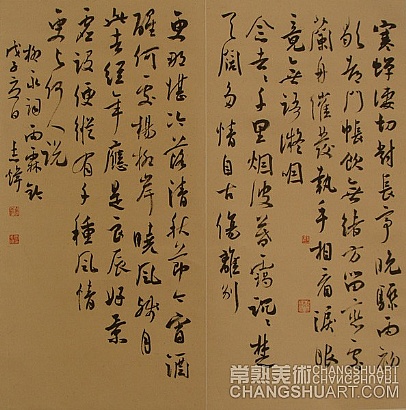 寒蟬淒切對長亭晚驟雨初
歇都門帳飲無緒方留戀處
蘭舟催發執手相看淚眼
竟無語凝咽
念去去千里烟波暮靄沉沉楚
天闊多情自古傷離別
更那堪冷落清秋節今宵酒
醒何處楊柳岸曉風殘月
此去經年應是良辰好景
虛設便縱有千種風情
更與何人說
柳永詞雨霖鈴
戊子夏日
常熟美術 CHANGSHUART
CHANGSHUART.COM